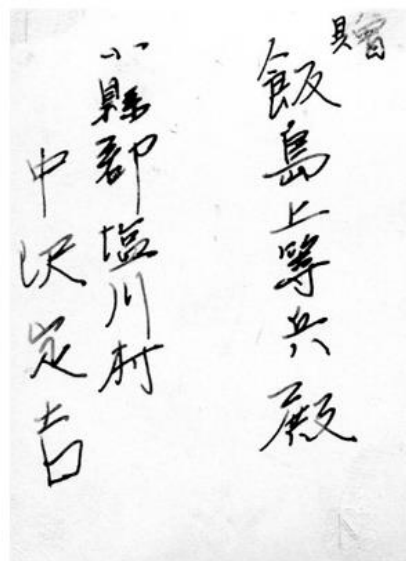 贈
飯島上等兵殿
小縣郡塩川村
中沢定吉